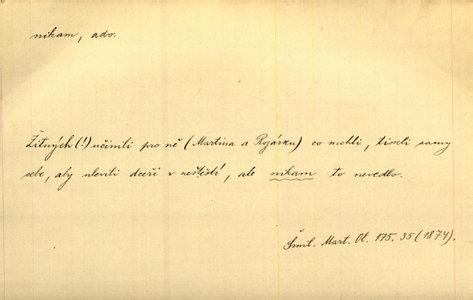 nikam, adv.
Žitných (!) učinili pro ně (Martina a Rozárku) co mohli, tiskli samy
sebe, aby ulevili dceři v neštěstí, ale nikam to nevedlo.
Šmil. Mart. Ol. 175. 35 (1874).